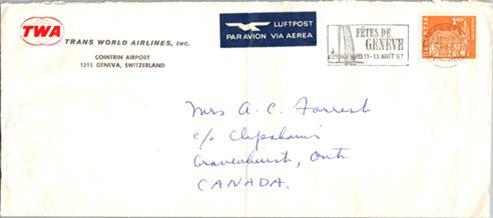 TWA
TRANS WORLD AIRLINES, INC.
COINTRIN AIRPORT
1215 GENEVA, SWITZERLAND
LUFTPOST
PAR AVION VIA AEREA
FÊTES DE
GENÈVE
11-13 AOUT 67
HELVETIA
1.00
Mrs A. C. Forrest
c/o Clipshams
Gravenhurst, Ont
CANADA.